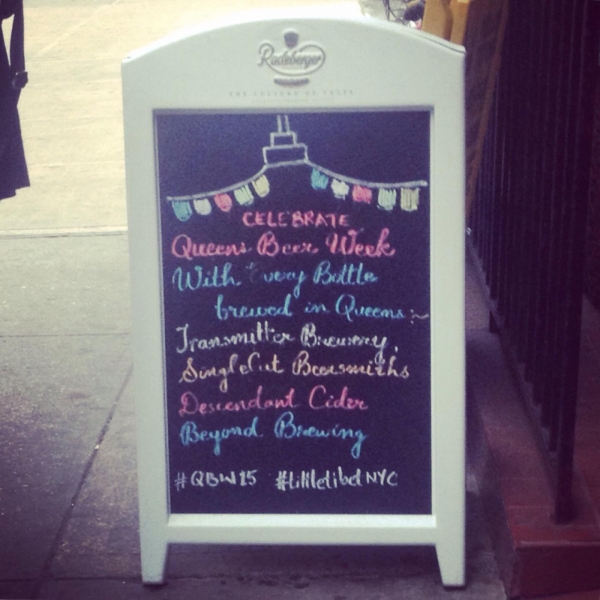 Radeberger
CELEBRATE
Queens Beer Week
With Every Bottle
brewed in Queens:~
Transmitter Brewery,
SingleCut Beersmiths
Descendant Cider
Beyond Brewing
#QBW15 #LittletibetNYC